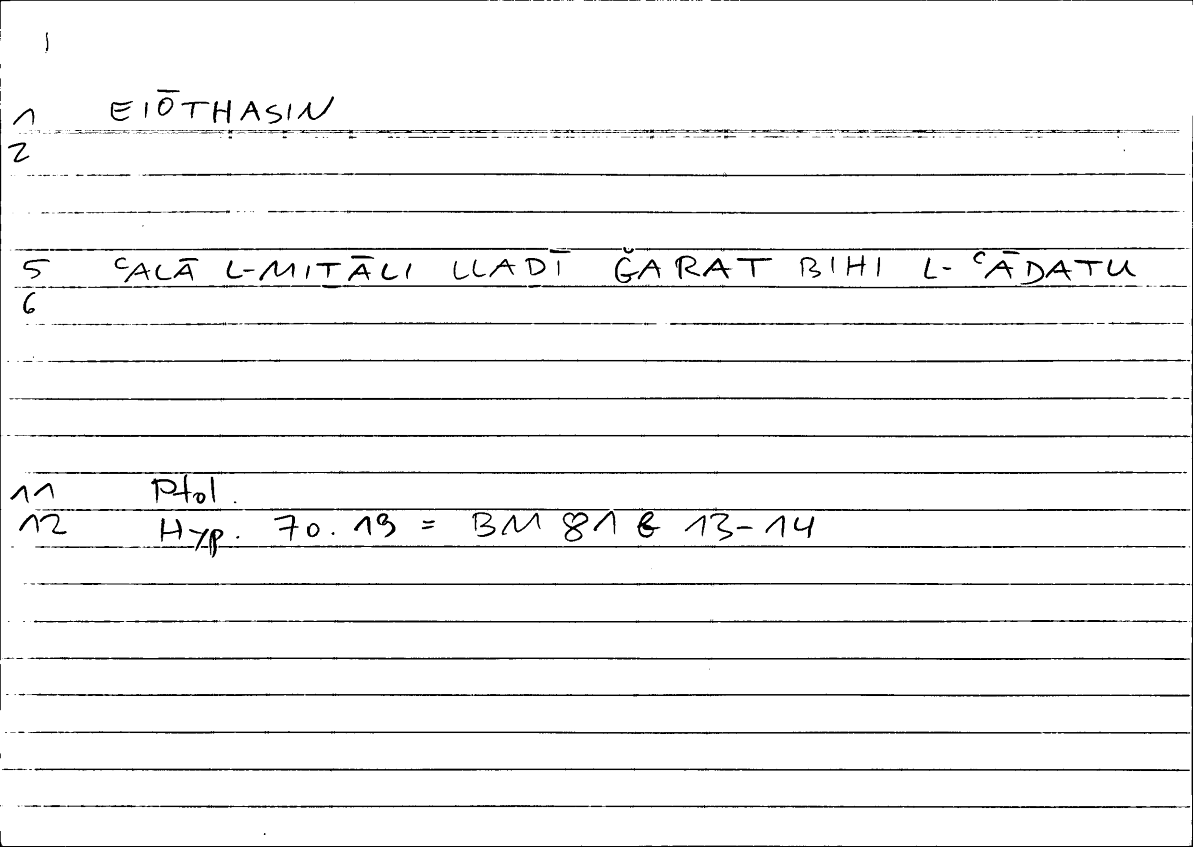 1 EIŌTHASIN
2
5 ʿALĀ L-MIṮĀLI LLADĪ ǦARAT BIHI L-ʿĀDATU
6
11 Ptol.
12 Hyp. 70.19 = BM 81 13-14